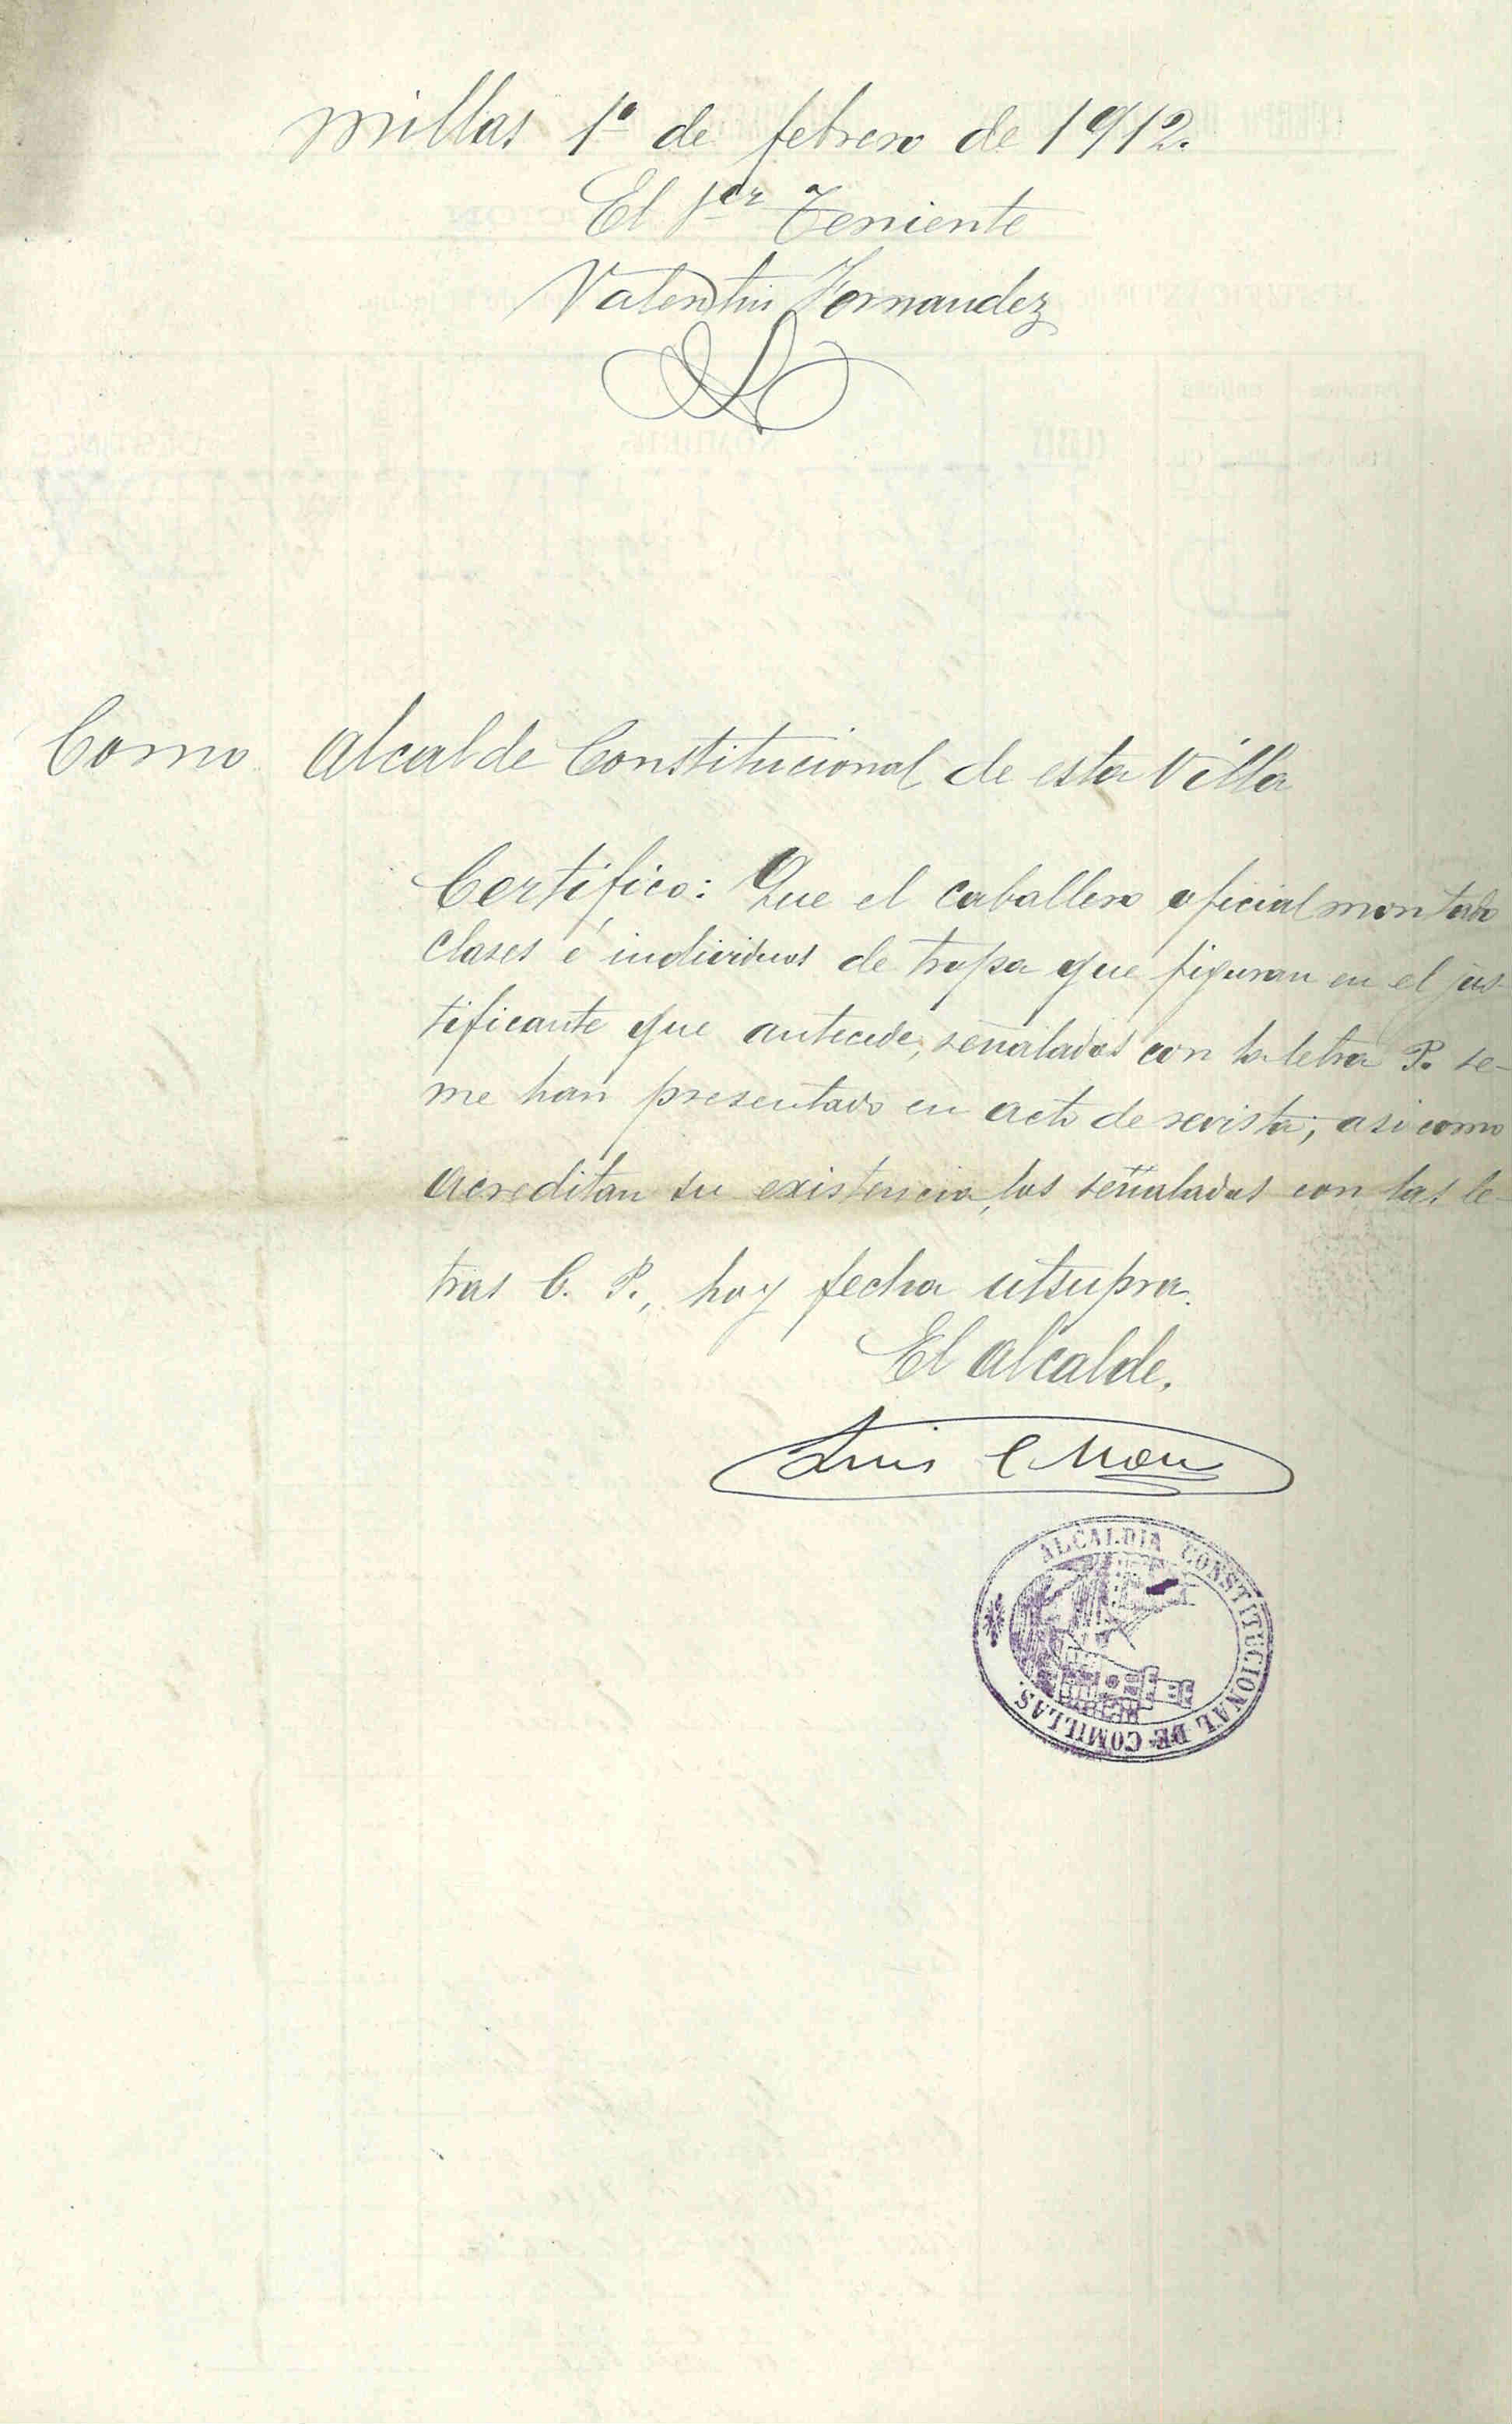 millas 1º de febrero de 1912.
El 1er Teniente
Valentin Fernandez
Como Alcalde Constitucional de esta Villa
Certifico: Que el caballero oficial montado
clases é individuos de tropa que figuran en el jus-
tificante que antecede, señalados con la letra P. se-
me han presentado en acto de revista, asi como
acreditan su existencia, los señalados con las le-
tras C. P., hoy fecha utsupra.
El Alcalde,
Luis
ALCALDIA CONSTITUCIONAL DE COMILLAS.